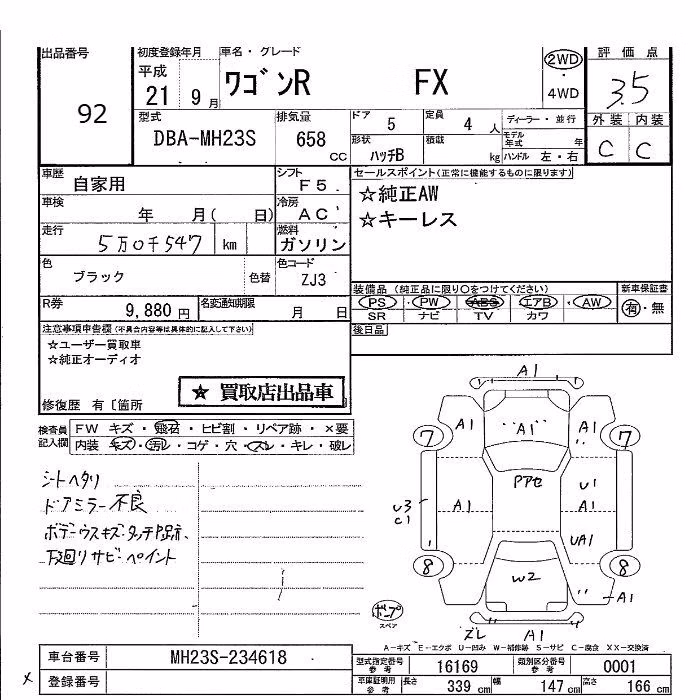 出品番号
92
初度登録年月
平成
21 9 月
車名・グレード
ワゴンR FX
2WD
・
4WD
評価点
3.5
型式
DBA-MH23S
排気量
658
CC
ドア 5
定員 4 人
ディーラー・並行
モデル年式 年
形状 ハッチB
積載 kg
ハンドル 左・右
外装 内装
C C
車歴 自家用
シフト F5
車検 年 月( 日)
冷房 AC
走行 5万0千547 km
燃料 ガソリン
色 ブラック 色替
色コード ZJ3
R券 9,880 円
名変通知期限 月 日
セールスポイント(正常に機能するものに限ります)
☆純正AW
☆キーレス
装備品 (純正品に限り○をつけてください)
新車保証書
PS・PW ABS エアB・AW
SR ナビ TV カワ
有・無
後日品
注意事項申告欄(不具合内容等は具体的に記入して下さい)
☆ユーザー買取車
☆純正オーディオ
★ 買取店出品車
修復歴 有〔箇所
検査員記入欄
FW キズ・飛石・ヒビ割・リペア跡・×要
内装 キズ・汚レ・コゲ・穴・スレ・キレ・破レ
シートヘタリ
ドアミラー不良
ボデーウスキズ・タッチP跡、
下廻りサビ・ペイント
A1
A1 "A1" A1
7 7
Pアセ
U3
C1
A1
U1
A1
UA1
8 8
W2
A1
ズレ A1
スペア
A-キズ E-エクボ U-凹み W-補修跡 S-サビ C-腐食 XX-交換済
車台番号 MH23S-234618
登録番号
型式指定番号 参考 16169
類別区分番号 参考 0001
車庫証明用 参考 長さ 339 cm 幅 147 cm 高さ 166 cm